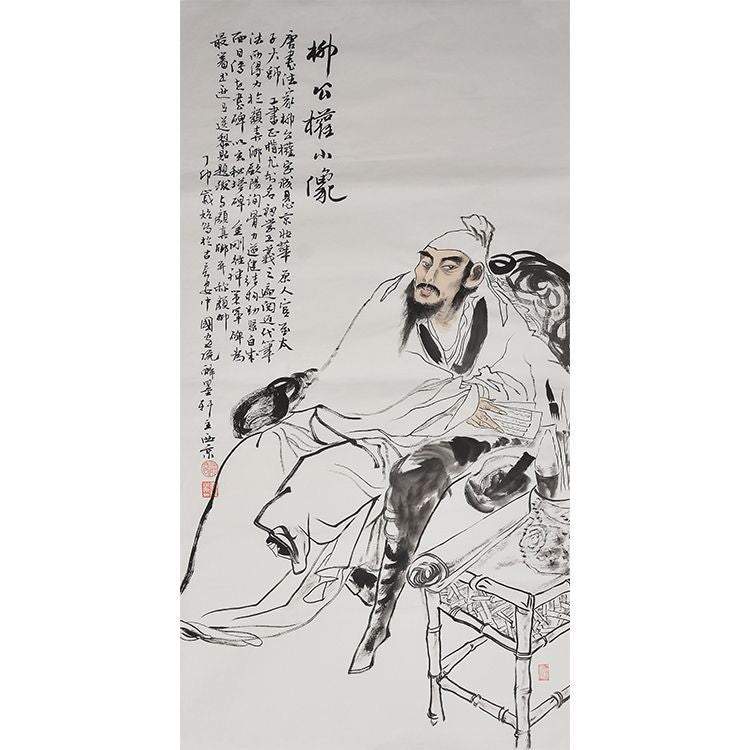 柳公權小像
唐書法家柳公權字誠悬京兆華原人官至太
子少師工書正楷尤知名初學王羲之遍阅近代筆
法而得力於顏真卿歐陽詢骨力遒健結构勁緊自成
面目傳世書碑以玄秘塔碑金剛經神策軍碑為
最著書迹有送梨帖題跋与顏真卿并称顏柳
丁卯歲 寫於古長安中國畫院醉墨軒主西京